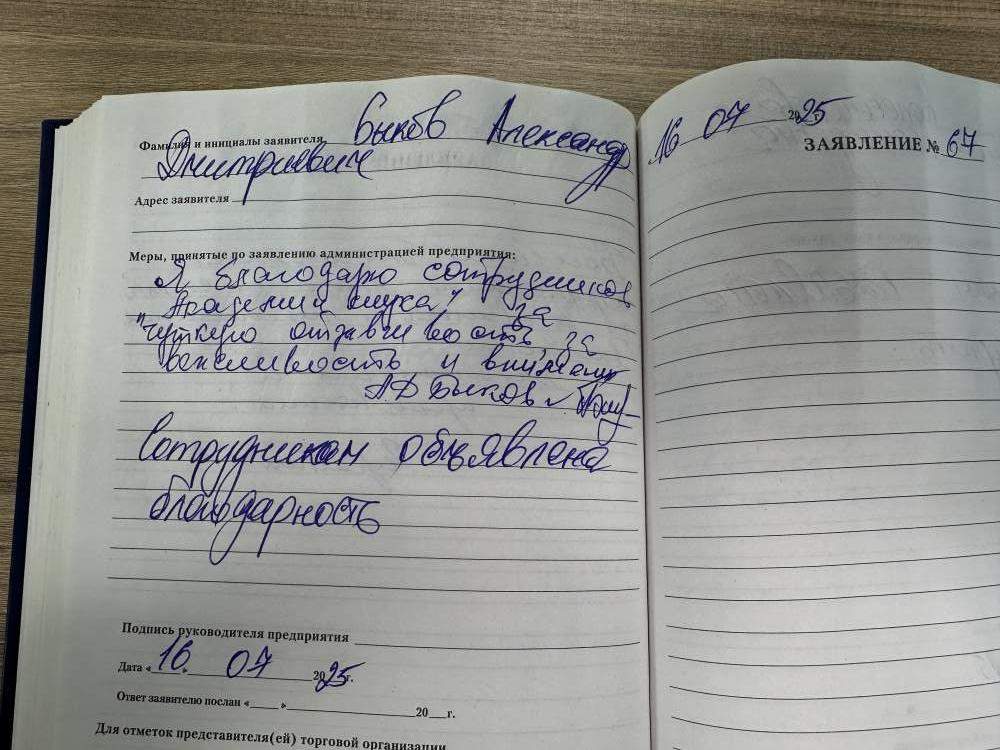 Фамилия и инициалы заявителя Быков Александр
Дмитриевич
Адрес заявителя
Меры, принятые по заявлению администрацией предприятия:
Я благодарю сотрудников
"Академии слуха" за
чуткую отзавчивость, за
вежливость и
АД Быков
Сотрудникам объявлена
благодарность
Подпись руководителя предприятия
Дата «16» 07 2025г.
Ответ заявителю послан « » 20 г.
Для отметок представителя(ей) торговой организации
16 07 2025
ЗАЯВЛЕНИЕ № 67